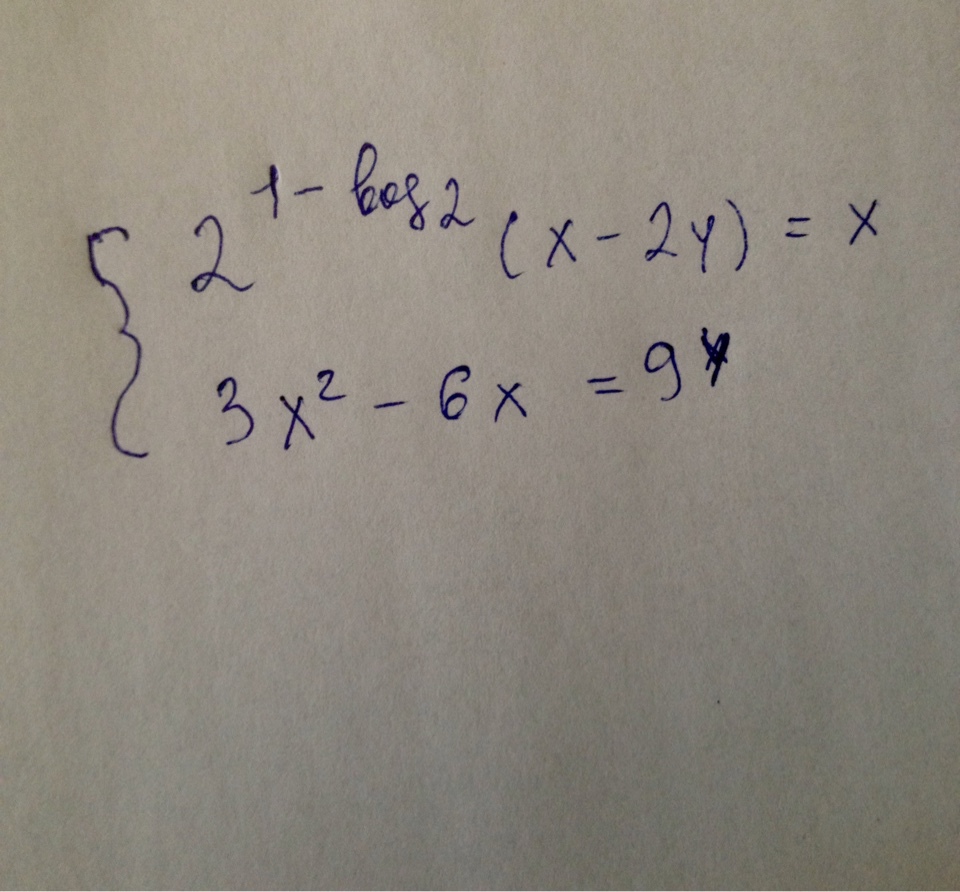 2^{1 - log_2 (x - 2y)} = x
3x² - 6x = 9^y